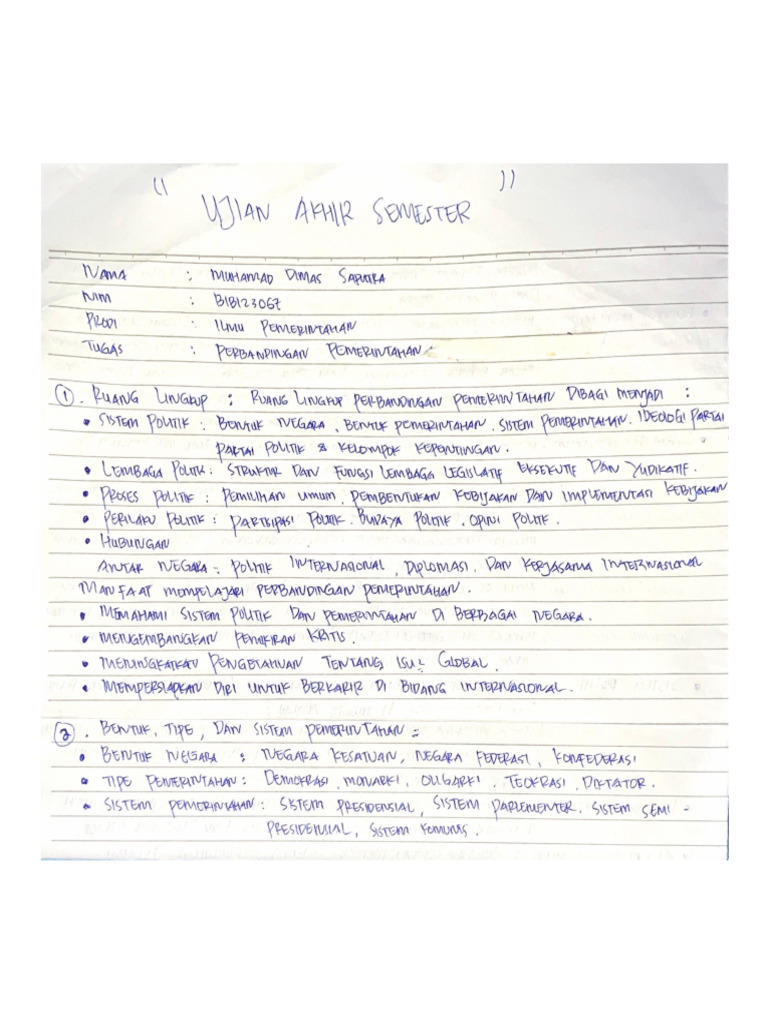 " UJIAN AKHIR SEMESTER "
NAMA : MUHAMAD DIMAS SAPUTRA
NIM : B1B123067
PRODI : ILMU PEMERINTAHAN
TUGAS : PERBANDINGAN PEMERINTAHAN
1. RUANG LINGKUP : RUANG LINGKUP PERBANDINGAN PEMERINTAHAN DIBAGI MENJADI :
• SISTEM POLITIK : BENTUK NEGARA, BENTUK PEMERINTAHAN. SISTEM PEMERINTAHAN. IDEOLOGI PARTAI
PARTAI POLITIK & KELOMPOK KEPENTINGAN.
• LEMBAGA POLITIK : STRUKTUR DAN FUNGSI LEMBAGA LEGISLATIF EKSEKUTIF DAN YUDIKATIF.
• PROSES POLITIK : PEMILIHAN UMUM. PEMBENTUKAN KEBIJAKAN DAN IMPLEMENTASI KEBIJAKAN
• PERILAKU POLITIK : PARTISIPASI POLITIK. BUDAYA POLITIK. OPINI POLITIK.
• HUBUNGAN
ANTAR NEGARA : POLITIK INTERNASIONAL, DIPLOMASI, DAN KERJASAMA INTERNASIONAL
MANFAAT MEMPELAJARI PERBANDINGAN PEMERINTAHAN.
• MEMAHAMI SISTEM POLITIK DAN PEMERINTAHAN DI BERBAGAI NEGARA.
• MENGEMBANGKAN PEMIKIRAN KRITIS.
• MENINGKATKAN PENGETAHUAN TENTANG ISU² GLOBAL.
• MEMPERSIAPKAN DIRI UNTUK BERKARIR DI BIDANG INTERNASIONAL.
2. BENTUK, TIPE, DAN SISTEM PEMERINTAHAN :
• BENTUK NEGARA : NEGARA KESATUAN, NEGARA FEDERASI, KONFEDERASI
• TIPE PEMERINTAHAN : DEMOKRASI, MONARKI, OLIGARKI. TEOKRASI, DIKTATOR.
• SISTEM PEMERINTAHAN : SISTEM PRESIDENSIAL, SISTEM PARLEMENTER. SISTEM SEMI -
PRESIDENSIAL, SISTEM KOMUNIS.